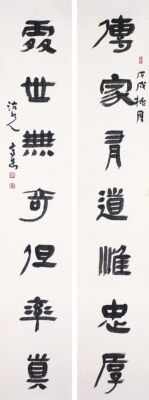 傳家有道惟忠厚
戊戌
處世無奇但率真